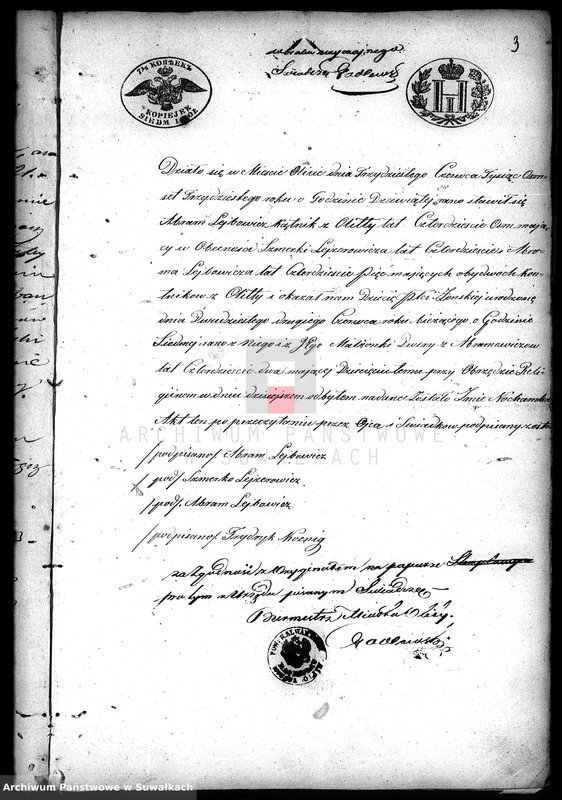 3
7½ KOPЕEKЪ
KOPIEJEK
SIEDM I PÓŁ
Działo się w Mieście Olicie dnia Trzydziestego Czerwca Tysiąc Osm-
set Trzydziestego roku o Godzinie Dziewiątej rano stawił się
Abram Lejbowicz kątnik z Olitty lat Czterdzieście Osm mają-
cy w Obecności Szmerki Lejzerowicza lat Czterdzieście i Abra-
ma Lejbowicza lat Czterdzieście pięć mających obydwóch kon-
tnikow z Olitty i okazał nam Dziecię płci Żenskiej urodzone
dnia Dwudziestego drugiego Czerwca roku bieżącego o Godzinie
Siodmej rano z Niego i z Jego Małżonki Dwery z Abramowiczow
lat Czterdzieście dwa mający Dziecięciu temu przy Obrzędzie Reli-
gijnem w dniu dzisiejszem odbytem nadane zostało Imie
Akt ten po przeczytaniu przez Ojca i Swiadkow podpisany został
/podpisano/ Abram Lejbowicz
/podp/ Szmerko Lejzerowicz
/podp/ Abram Lejbowicz
/podpisano/ Frydryk Koenig
za Zgodność z Oryginałem na papierze
Burmistrz Miasta Olity
ARCHIWUM PAŃSTWOWE
W SUWAŁKACH
Archiwum Państwowe w Suwałkach